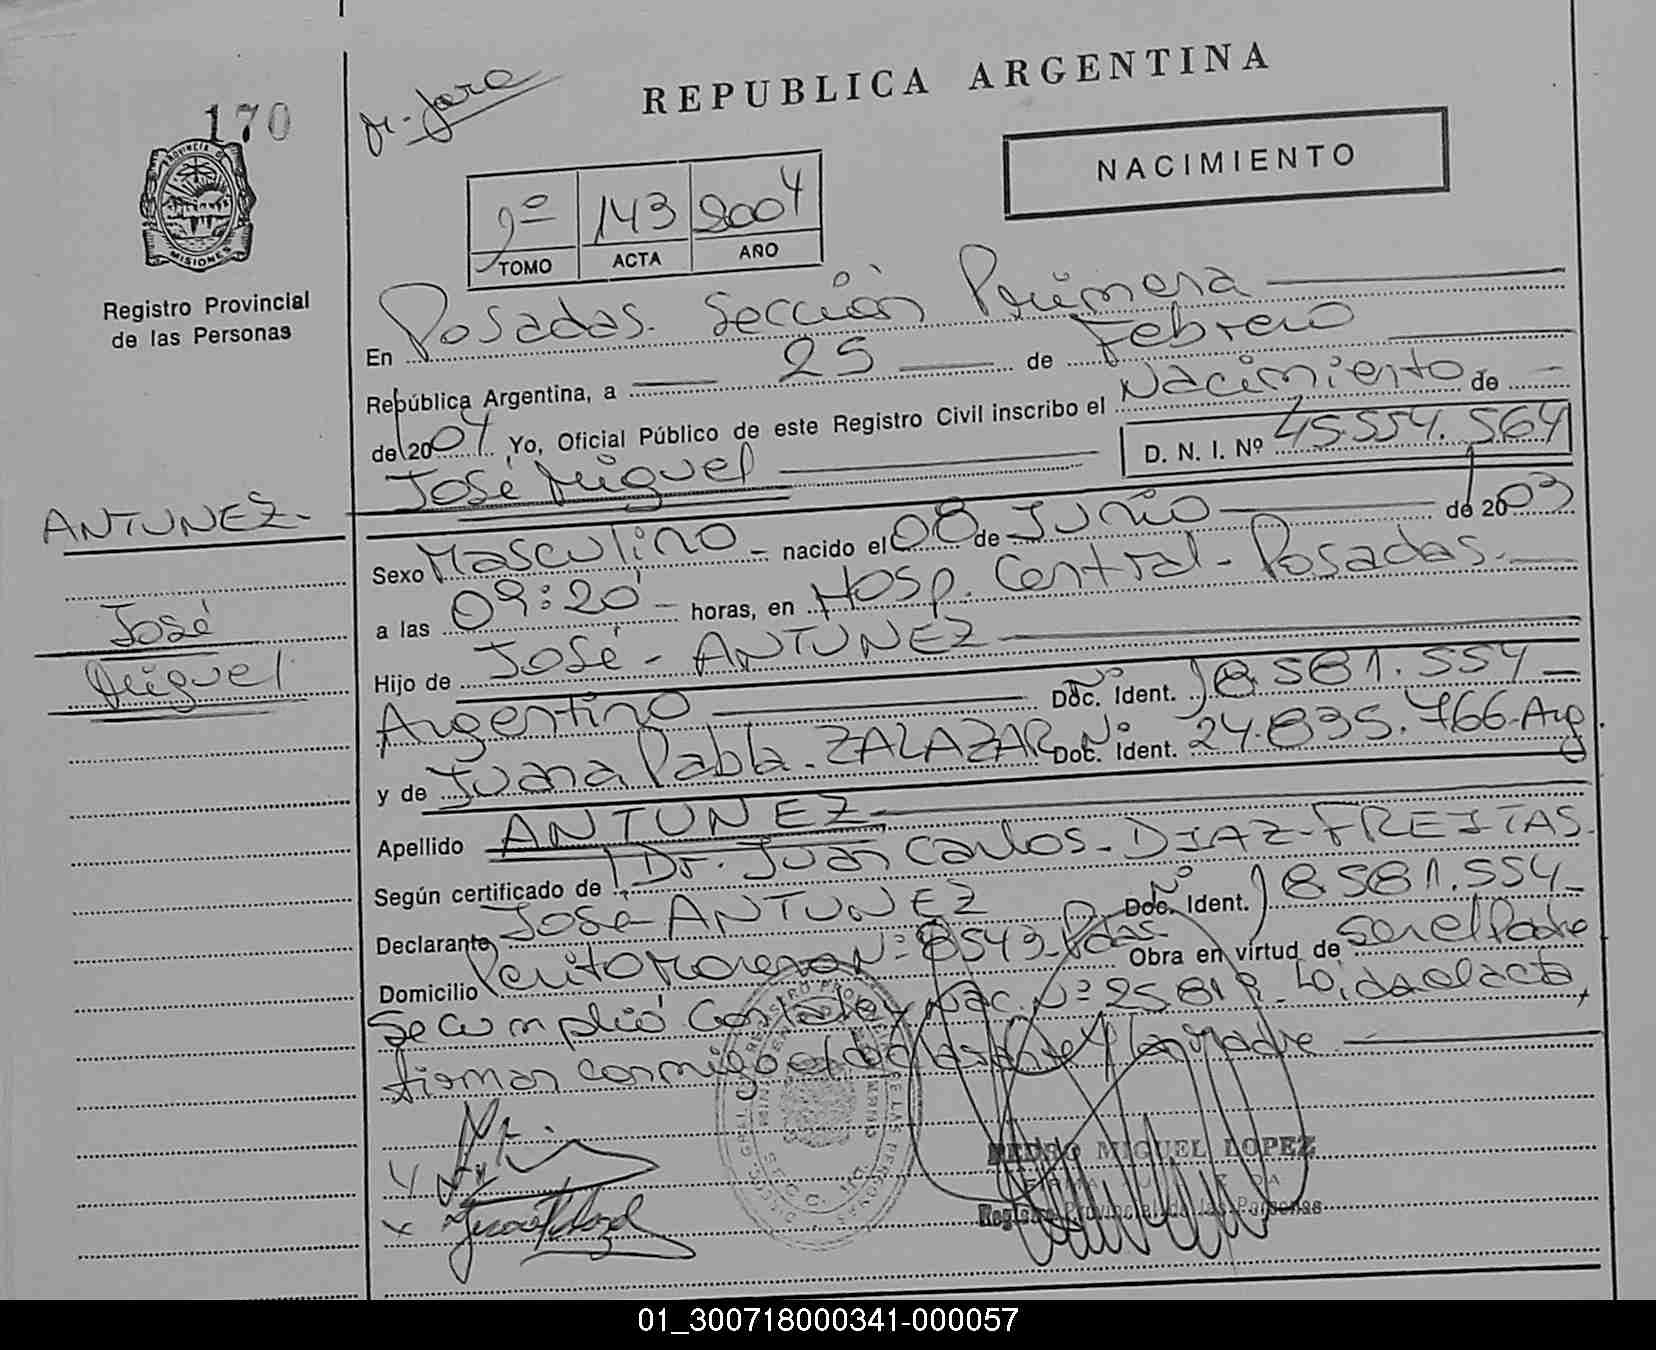 REPUBLICA ARGENTINA
170
PROVINCIA DE
MISIONES
Registro Provincial
de las Personas
NACIMIENTO
143 2004
TOMO ACTA AÑO
En Posadas. Sección Primera
República Argentina, a 25 de Febrero
de 2004 Yo, Oficial Público de este Registro Civil inscribo el Nacimiento de
José Miguel D. N. I. Nº 45.554.564
ANTUNEZ.-
José
Miguel
Sexo Masculino - nacido el 08 de Junio de 2003
a las 09:20 - horas, en Hosp. Central - Posadas.
Hijo de José - ANTUNEZ
Argentino Doc. Nº Ident. 18.581.554
y de Juana Pabla. ZALAZAR Doc. Nº Ident. 24.835.766-Arg.
Apellido ANTUNEZ
Según certificado de Dr. Juan Carlos - DIAZ - FREITAS.
Declarante José - ANTUNEZ Doc. Nº Ident. 18.581.554
Domicilio Perito Moreno Nº: 8543 - Pdas. Obra en virtud de ser el Padre
Se cumplió Nº 25.819. Leída el acta,
firman conmigo el declarante y la madre
PEDRO MIGUEL LOPEZ
Registro Provincial de las Personas
01_300718000341-000057